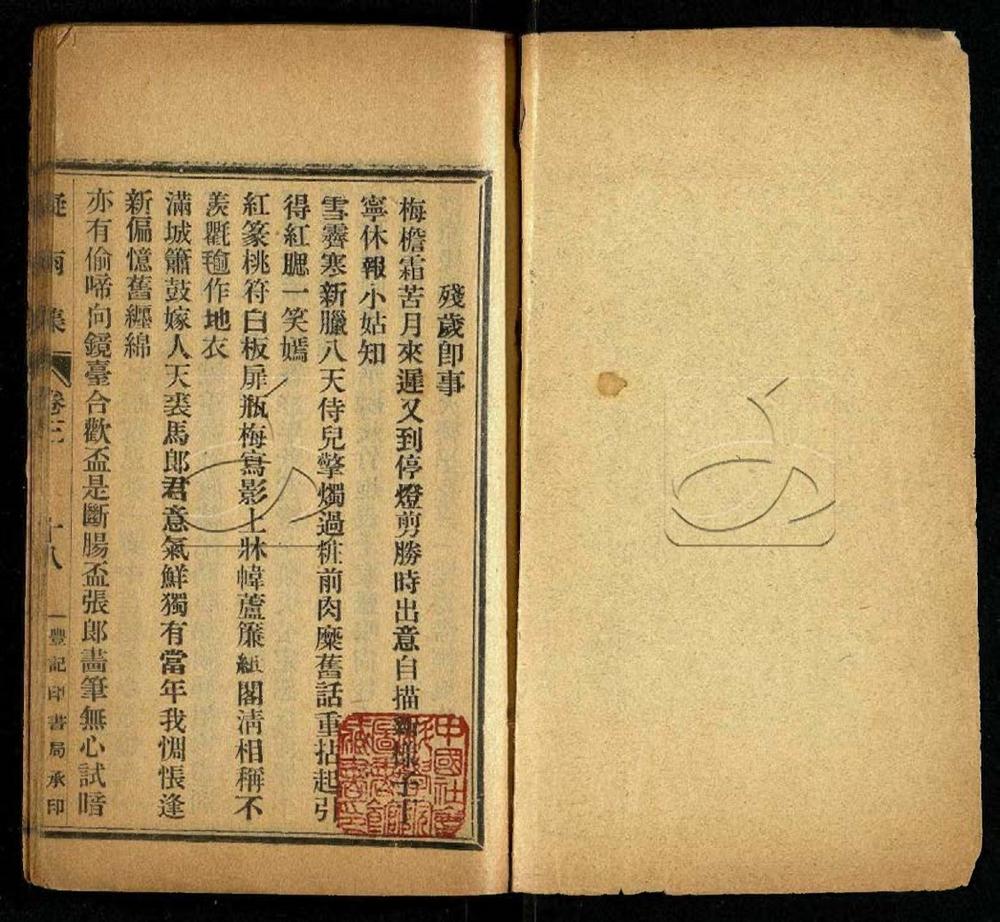 殘歲卽事
梅檐霜苦月來遲又到停燈剪勝時出意自描新樣子丁
寧休報小姑知
雪霽寒新臘八天侍兒擎燭過粧前肉糜舊話重拈起引
得紅腮一笑嫣
紅篆桃符白板扉瓶梅寫影上牀幃蘆簾紙閣淸相稱不
羨氍毹作地衣
滿城簫鼓嫁人天裘馬郎君意氣鮮獨有當年我惆悵逢
新偏憶舊纏綿
亦有偷啼向鏡臺合歡盃是斷腸盃張郎畫筆無心試暗
疑雨集
卷三
十八
豐記印書局承印
中國社會科學院圖書館藏書印